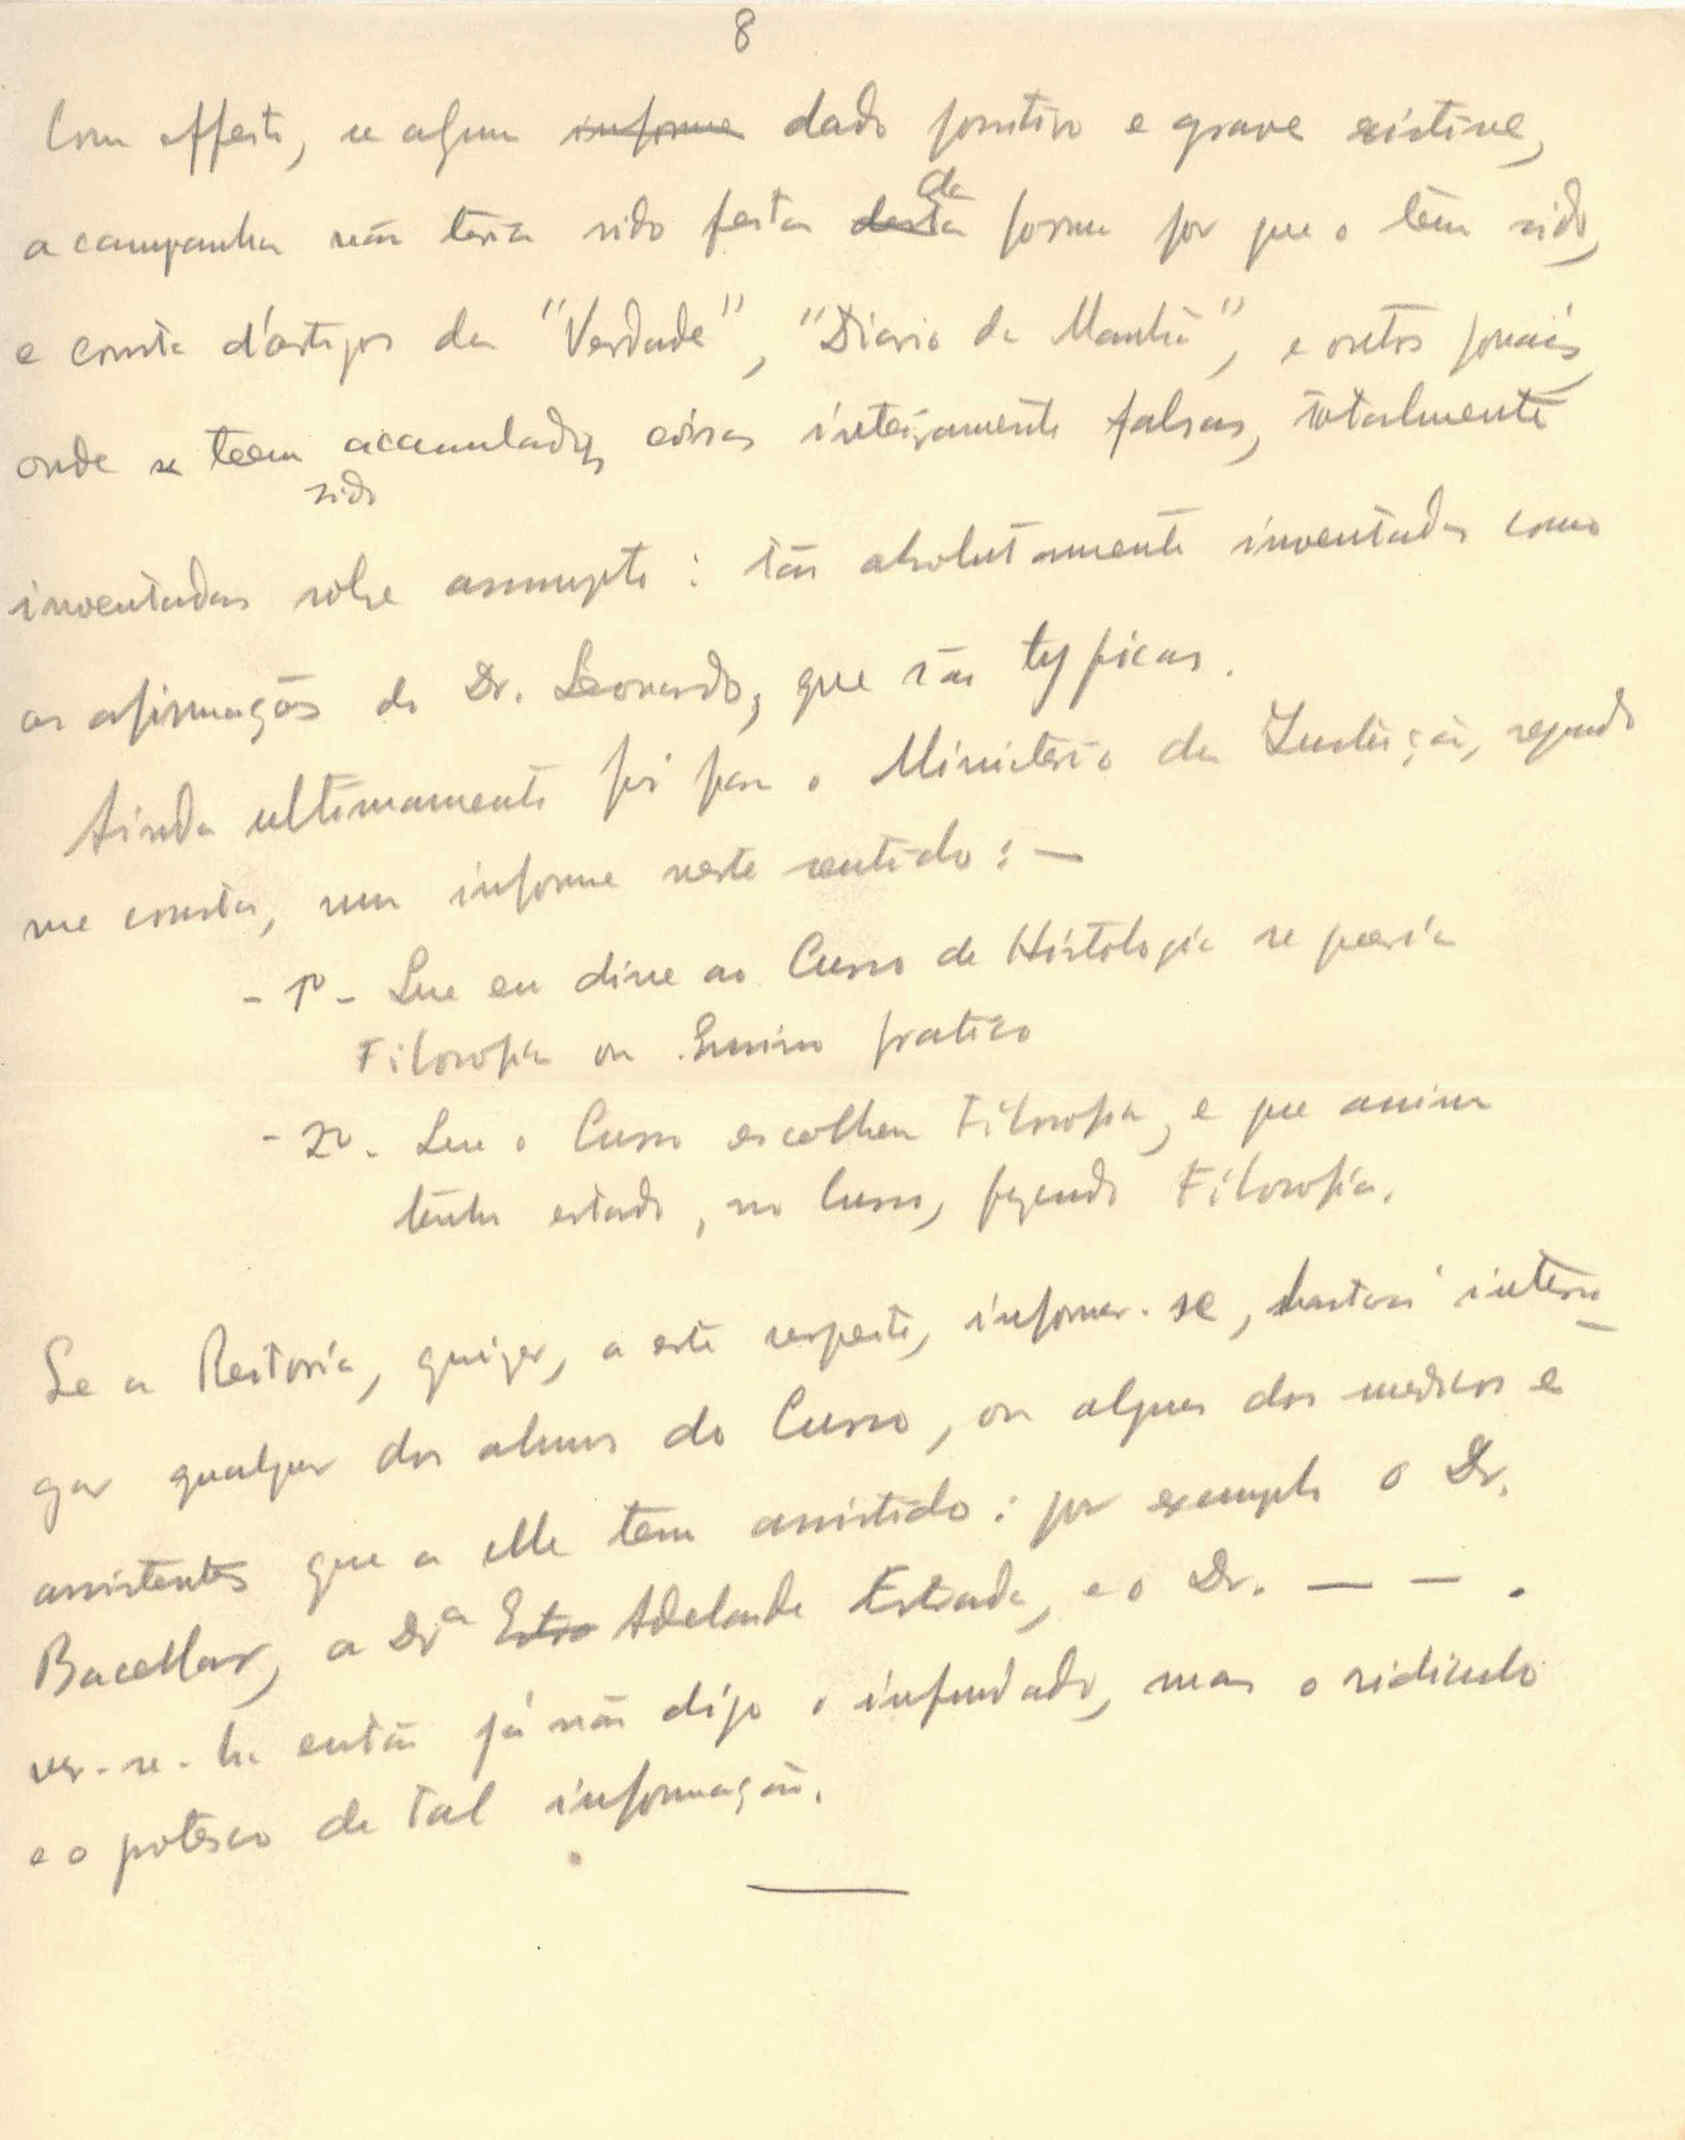 8
Com effeito, se algum informe dado positivo e grave existisse,
a campanha não teria sido feita desta da forma por que o tem sido,
e consta d'artigos da "Verdade", "Diario da Manhã", e outros jornaes,
onde se teem sido accumulado, coisas inteiramente falsas, totalmente
inventadas sobre assumpto: tão absolutamente inventadas como
as afirmações do Dr. Leonardo, que são typicas.
Ainda ultimamente foi para o Ministerio da Instrução, segundo
me consta, um informe neste sentido: —
- 1º - Que eu disse ao Curso de Histologia se queria
Filosofia ou Ensino pratico
- 2º - Que o Curso escolheu Filosofia, e que assim
tenho estado, no Curso, fazendo Filosofia.
Se a Reitoria, quizer, a este respeito, informar-se, bastará interro-
gar qualquer dos alunos do Curso, ou algum dos medicos e
assistentes que a elle tem assistido: por exemplo o Dr.
Bacellar, a Drª Estra Adelaide Estrada, e o Dr. — — .
ver-se-ha então já não digo o infundado, mas o ridiculo
e o grotesco de tal informação.